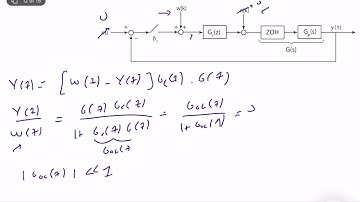 12 of 16
w[k]
0
G_c(z)
ZOH
G_p(s)
y(t)
G(s)
Y(z) = [W(z) - Y(z)] G_c(z) . G(z)
Y(z) / W(z) = G(z) G_c(z) / 1 + G_c(z) G(z) = G_OL(z) / 1 + G_OL(z) =
G_OL(z
| G_OL(z) | << 1